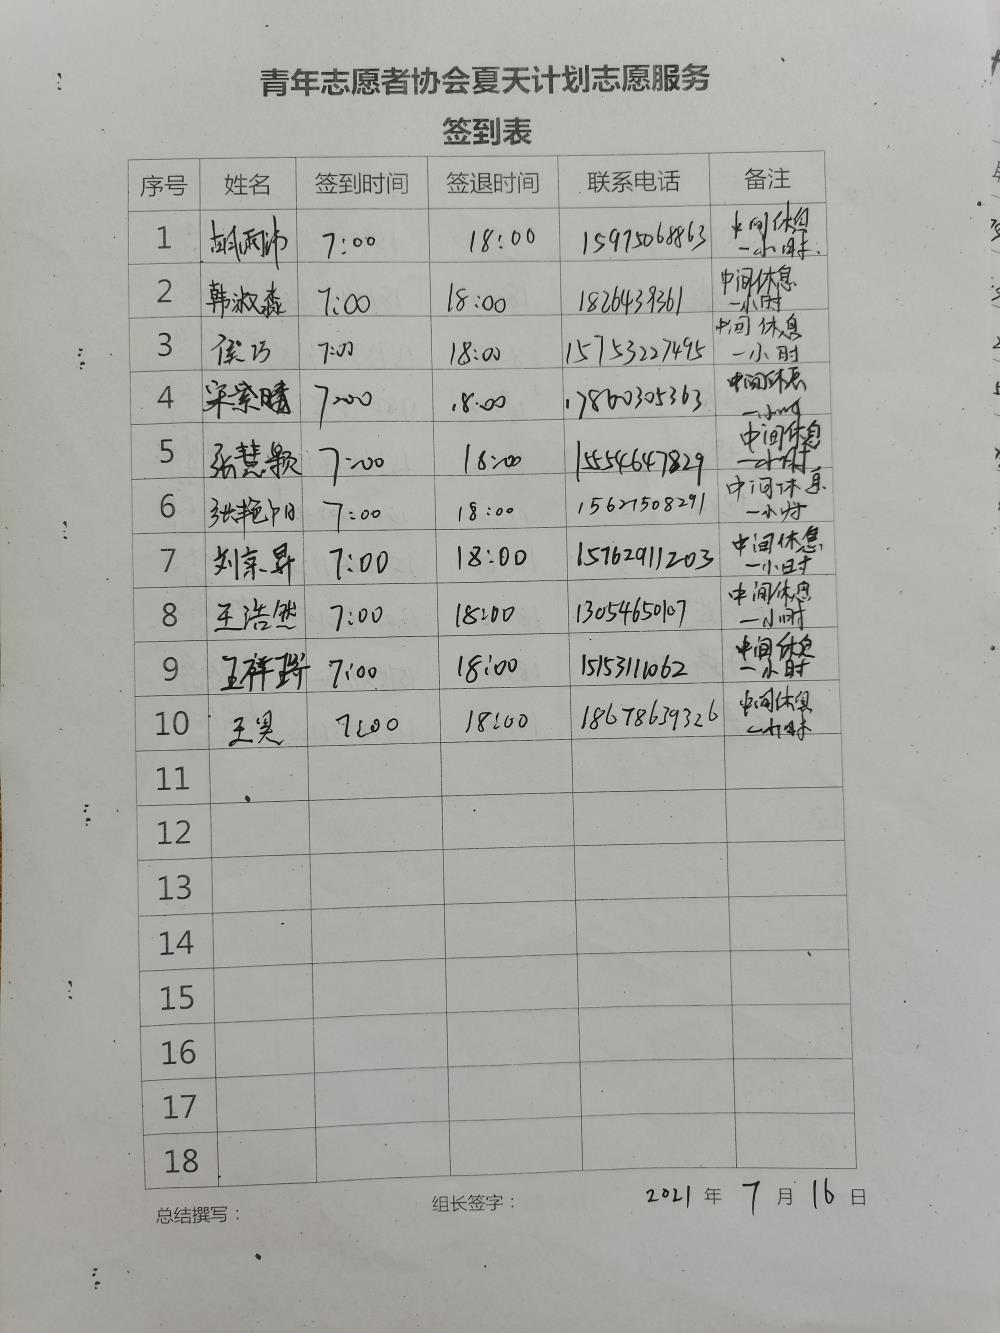 青年志愿者协会夏天计划志愿服务
签到表
序号 姓名 签到时间 签退时间 联系电话 备注
1 胡雨沛 7:00 18:00 15975068863 中间休息
一小时.
2 韩淑淼 7:00 18:00 1826439361 中间休息
一小时
3 侯巧 7:00 18:00 15753227495 中间休息
一小时
4 宋紫晴 7:00 18:00 17860305363 中间休息
一小时
5 张慧颖 7:00 18:00 15554647829 中间休息
一小时
6 张艳阳 7:00 18:00 15621508291 中间休息
一小时
7 刘京昇 7:00 18:00 15762911203 中间休息
一小时
8 王浩然 7:00 18:00 13054650107 中间休息
一小时
9 王祥瑞 7:00 18:00 15153111062 中间休息
一小时
10 王昊 7:00 18:00 18678639326 中间休息
一小时
11
12
13
14
15
16
17
18
总结撰写： 组长签字： 2021 年 7 月 16 日